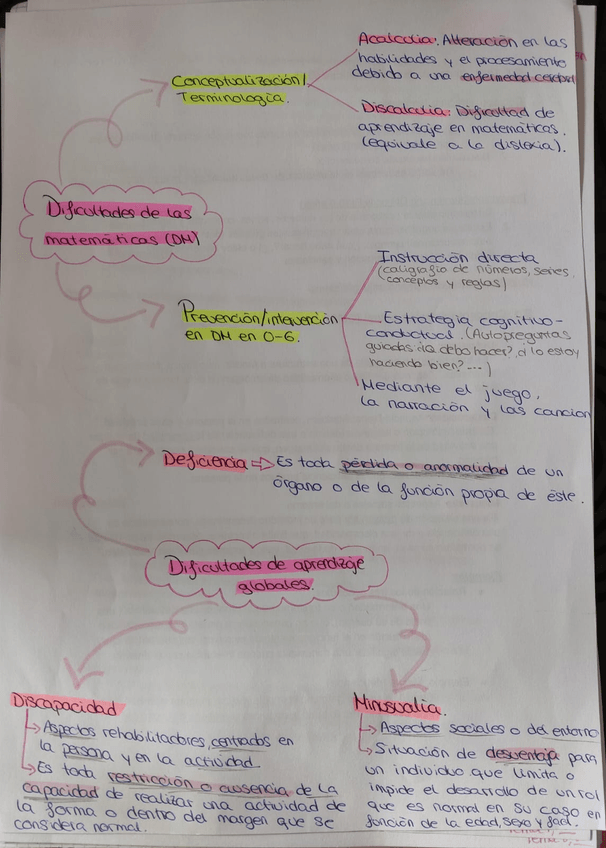 Acalculia: Alteración en las
habilidades y el procesamiento
debido a una enfermedad cerebral
Conceptualización/
Terminología.
Discalculia: Dificultad de
aprendizaje en matemáticas.
(equivale a la dislexia).
Dificultades de las
matemáticas (DM)
Instrucción directa
(caligrafía de números, series,
conceptos y reglas)
Prevención/intervención
en DM en 0-6.
Estrategia cognitivo-
conductual. (Autopreguntas
guiadas ¿q debo hacer? ¿lo estoy
haciendo bien?...)
Mediante el juego,
la narración y las cancion
Deficiencia ⇒ Es toda pérdida o anormalidad de un
órgano o de la función propia de éste.
Dificultades de aprendizaje
globales.
Discapacidad
↳ Aspectos rehabilitadores, centrados en
la persona y en la actividad.
↳ Es toda restricción o ausencia de la
capacidad de realizar una actividad de
la forma o dentro del margen que se
considera normal.
Minusvalía.
↳ Aspectos sociales o del entorno
↳ Situación de desventaja para
un individuo que limita o
impide el desarrollo de un rol
que es normal en su caso en
función de la edad, sexo y fact.